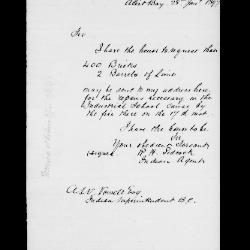 Alert Bay. 28th Jany. 189
Sir
I have the honor to request that
400 Bricks
2 Barrels of Lime
may be sent to my address here
for the repairs necessary in the
Industrial School caused by
the fire there on the 17th inst.
I have the honor to be
Sir
Your obedient Servant
signed R. H. Pidcock
Indian Agent
A. W. Vowell Esq.
Indian Superintendent B.C.